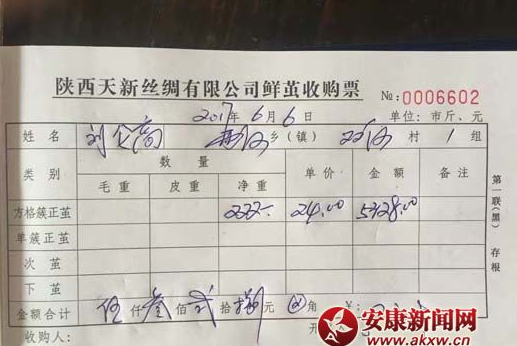 陕西天新丝绸有限公司鲜茧收购票 №:0006602
2017年6月6日 单位:市斤、元
姓名 刘 乡(镇) 双河 村 1 组
类别 数量 单价 金额 备注
毛重 皮重 净重
方格簇正茧 222- 24.00 5328.00
单簇正茧
次茧
下茧
金额合计 伍仟叁佰贰拾捌元 角 ¥:
收购人: 开
第一联(黑) 存根
安康新闻网
www.akxw.cn